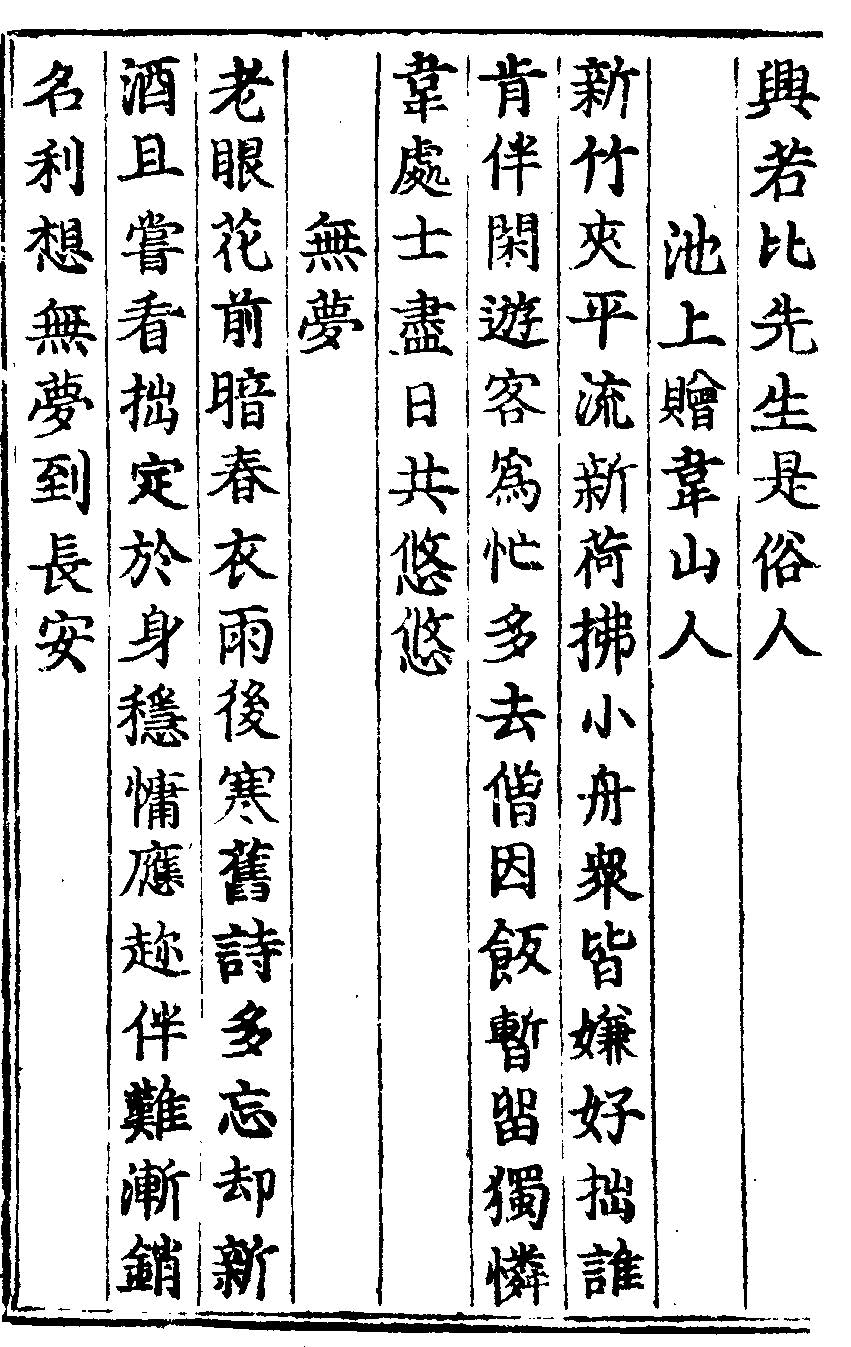 興若比先生是俗人
池上贈韋山人
新竹夾平流新荷拂小舟衆皆嫌好拙誰
肯伴閑遊客爲忙多去僧因飯暫留獨憐
韋處士盡日共悠悠
無夢
老眼花前暗春衣雨後寒舊詩多忘却新
酒且嘗看拙定於身穩慵應趂伴難漸銷
名利想無夢到長安